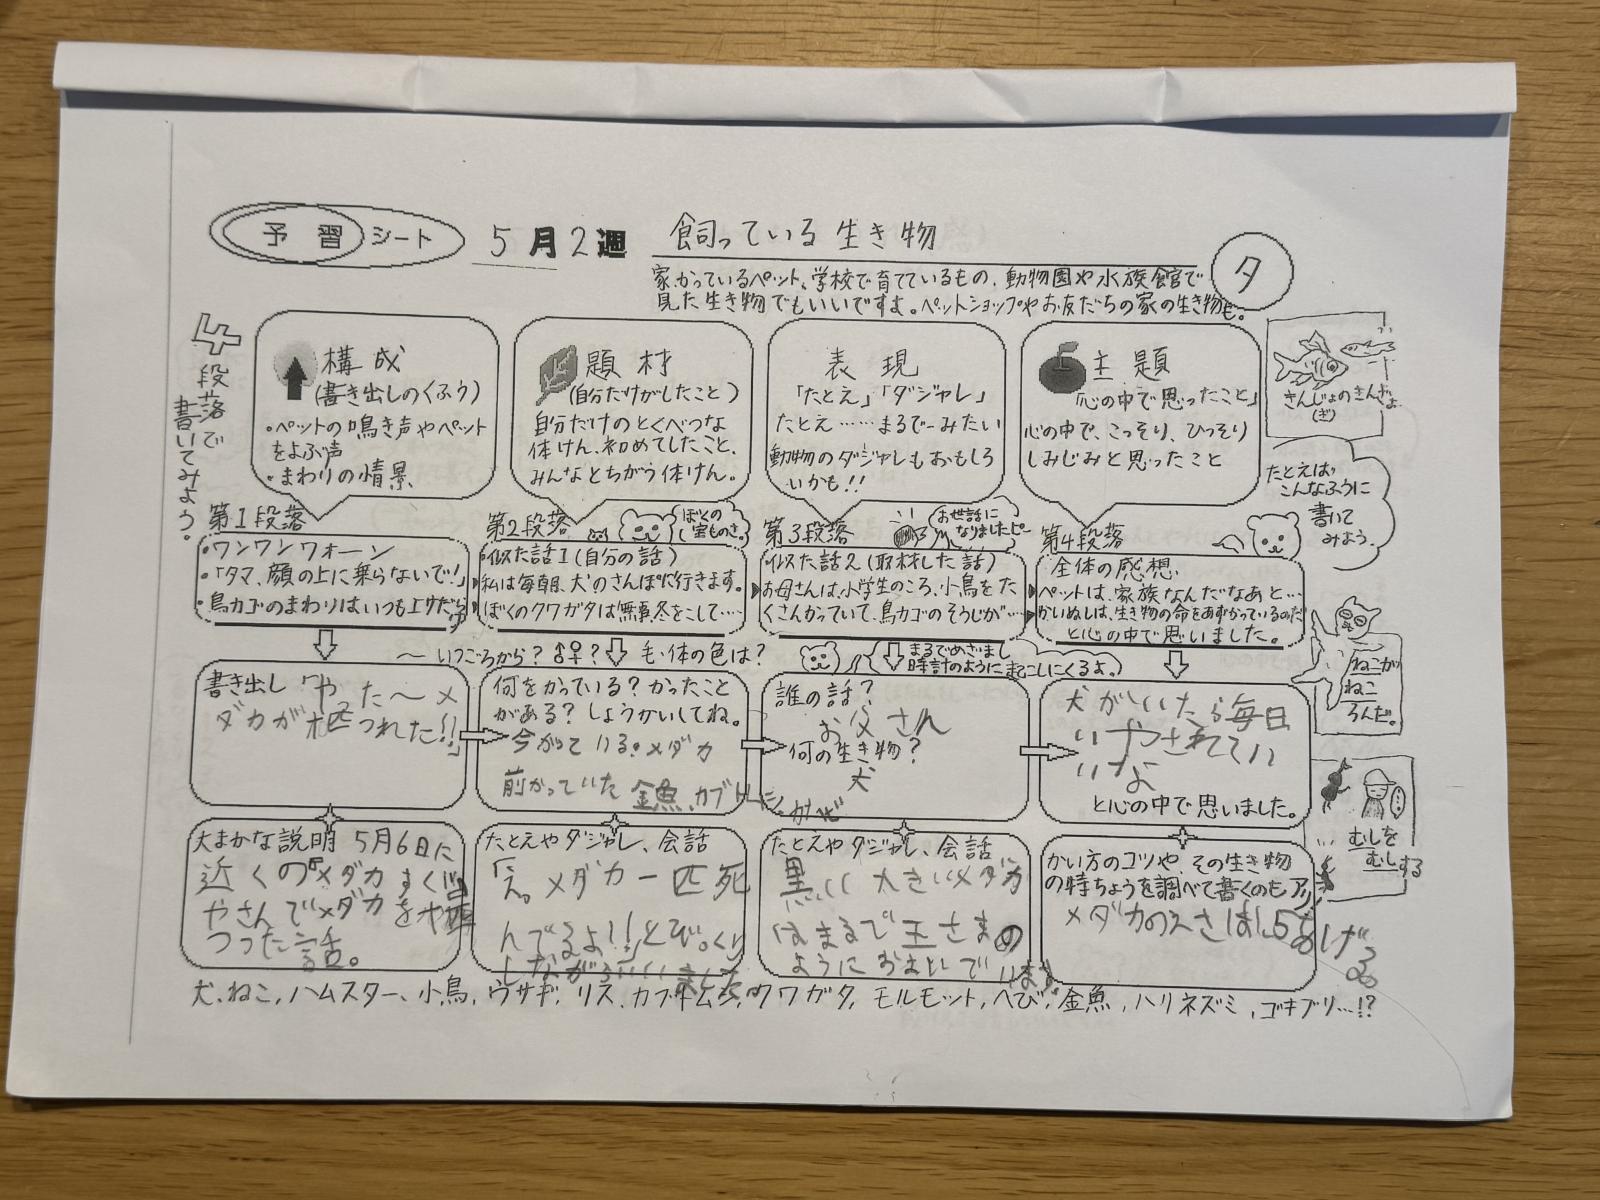 予習シート
5月2週
飼っている生き物
家かっているペット、学校で育てているもの、動物園や水族館で
見た生き物でもいいですよ。ペットショップやお友だちの家の生き物も。
タ
4段落で
書いてみよう。
構成
(書き出しのくふう)
・ペットの鳴き声やペット
をよぶ声
・まわりの情景
題材
(自分だけがしたこと)
自分だけのとくべつな
体けん、初めてしたこと、
みんなとちがう体けん。
表現
「たとえ」「ダジャレ」
たとえ……まるで〜みたい
動物のダジャレもおもしろ
いかも!!
主題
「心の中で思ったこと」
心の中で、こっそり、ひっそり
しみじみと思ったこと
きんじょのきんぎょ
(ぎ)
たとえば、
こんなふうに
書いて
みよう。
第1段落
・ワンワンウォーン
・「タマ、顔の上に乗らないで!」
・鳥カゴのまわりはいつも
第2段落
ぼくの
宝ものさ
・似た話1(自分の話)
私は毎朝、犬のさんぽに行きます。
ぼくのクワガタは無事、冬をこして……
第3段落
お世話に
なりましたピー
似た話2(取材した話)
お母さんは、小学生のころ、小鳥をた
くさんかっていて、鳥カゴのそうじが……
第4段落
全体の感想
ペットは、家族なんだなあと…
かいぬしは、生き物の命をあずかっているのだ
と心の中で思いました。
〜いつごろから?♂♀? 毛・体の色は?
まるでめざまし
時計のように起こしにくるよ。
ねこが
ねこ
ろんだ。
書き出し「やった〜メ
ダカが 匹つれた!!」
何をかっている?かったこと
がある?しょうかいしてね。
今かっている。メダカ
前かっていた 金魚、カブトムシ
誰の話?
お父さん
何の生き物?
犬
犬がいたら毎日
いやされてい
いな
と心の中で思いました。
むしを
むしする
大まかな説明 5月6日に
近くの メダカすくい
やさんでメダカを
つった話。
たとえやダジャレ、会話
「え。メダカ一匹死
んでるよ!!」とびっくり
しながら
たとえやダジャレ、会話
黒い 大きいメダカ
はまるで王さまの
ように います。
かい方のコツや、その生き物
の特ちょうを調べて書くのもアリ!
メダカのえさは1、5
あげる
犬、ねこ、ハムスター、小鳥、ウサギ、リス、カブトムシ、クワガタ、モルモット、へび、金魚、ハリネズミ、ゴキブリ…!?